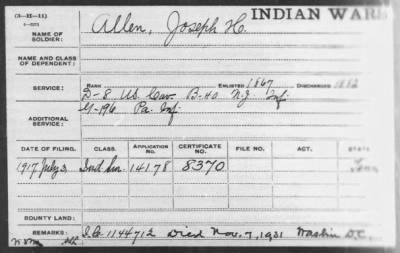 (3-IX-11)
INDIAN WARS
NAME OF SOLDIER: Allen, Joseph H.
NAME AND CLASS OF DEPENDENT:
SERVICE: RANK ENLISTED 1867 DISCHARGED 1882
D-8 U.S. Cav. B-40 N.J. Inf.
G-196 Pa. Inf.
ADDITIONAL SERVICE:
DATE OF FILING. CLASS. APPLICATION NO. CERTIFICATE NO. FILE NO. ACT. STATE
1917 July 2 14178 8370
BOUNTY LAND:
REMARKS: 1144712 Died Nov. 7, 1931 D.C.